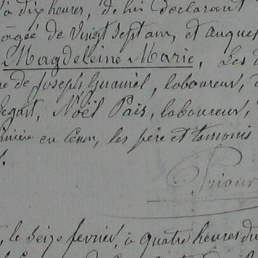 à dix heures, de lui déclarant
agée de vingt sept ans, et auquel
Magdeleine Marie, Les d
de Joseph Guaniel, laboureur,
Begart, Noël Pais, laboureur,
en les père et témoins
Priour
le seize fevrier, à quatre heures du